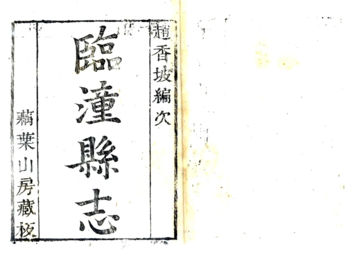 趙香坡編次
臨潼縣志
萵葉山房藏板